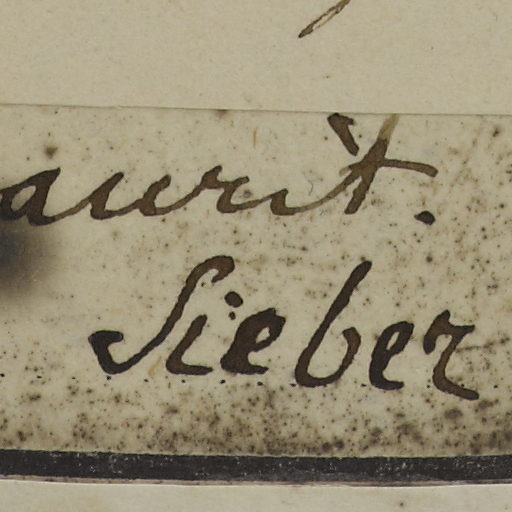 aurit.
Sieber